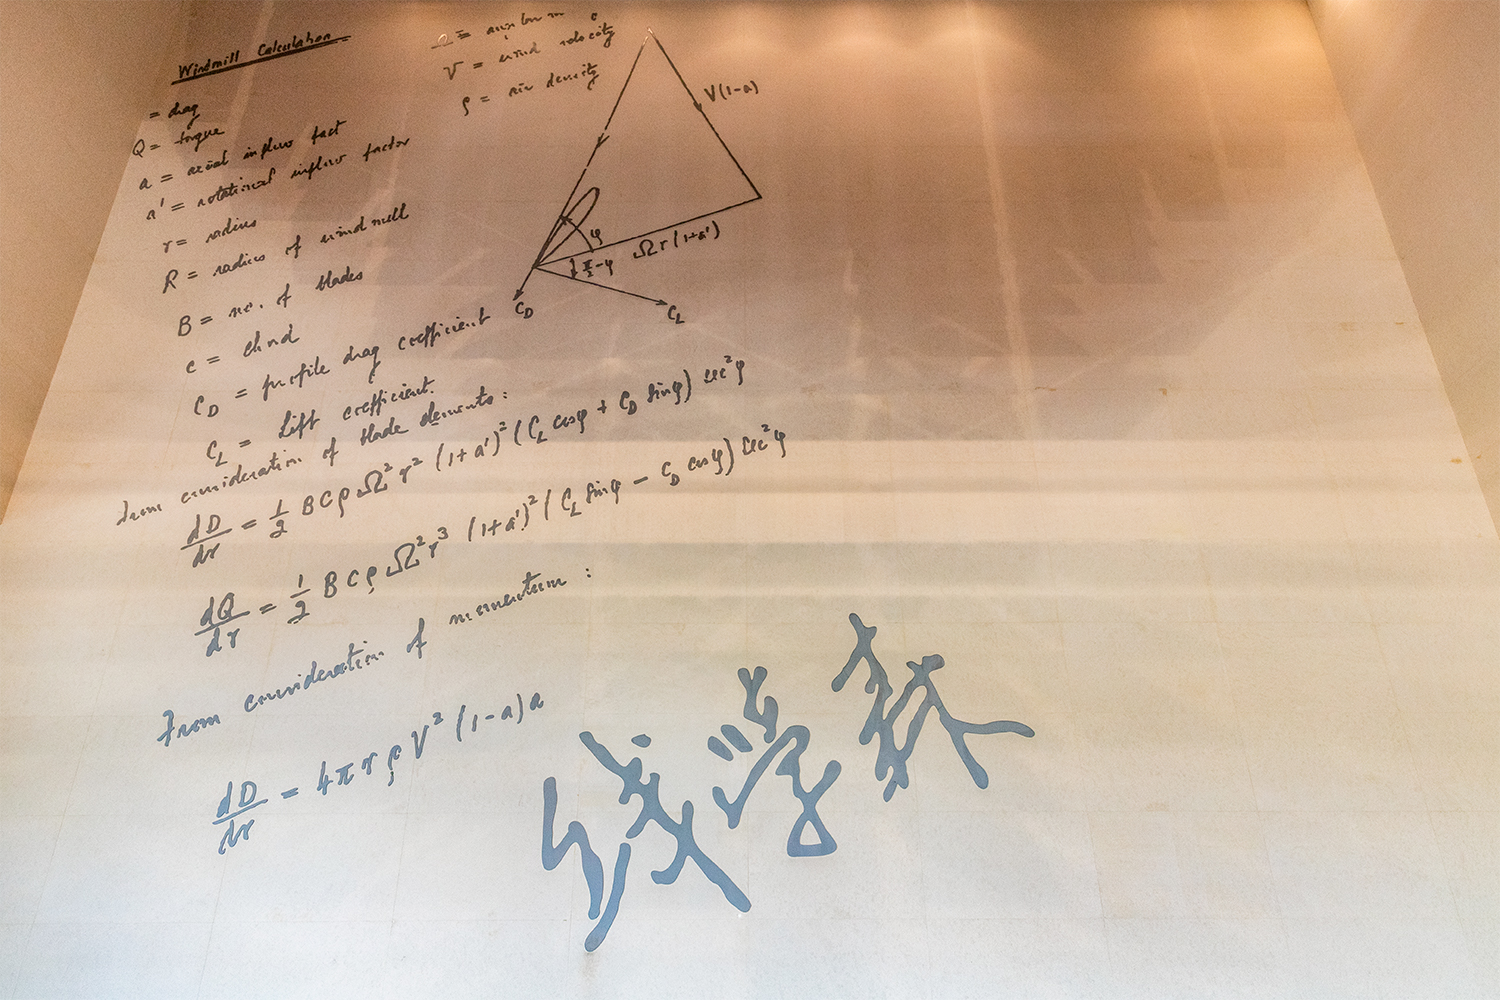 Windmill Calculation
= drag
Q = torque
a = axial inflow fact
a' = rotational inflow factor
r = radius
R = radius of windmill
B = no. of blades
c = chord
C_D = profile drag coefficient
C_L = Lift coefficient.
Ω =
V = wind velocity
ρ = air density
V(1-a)
φ
Ωr(1+a')
π/2-φ
C_D
C_L
From consideration of blade elements:
dD/dr = 1/2 BCρΩ²r² (1+a')² (C_L cosφ + C_D sinφ) sec²φ
dQ/dr = 1/2 BCρΩ²r³ (1+a')² (C_L sinφ - C_D cosφ) sec²φ
From consideration of momentum:
dD/dr = 4πrρV²(1-a)a
钱学森